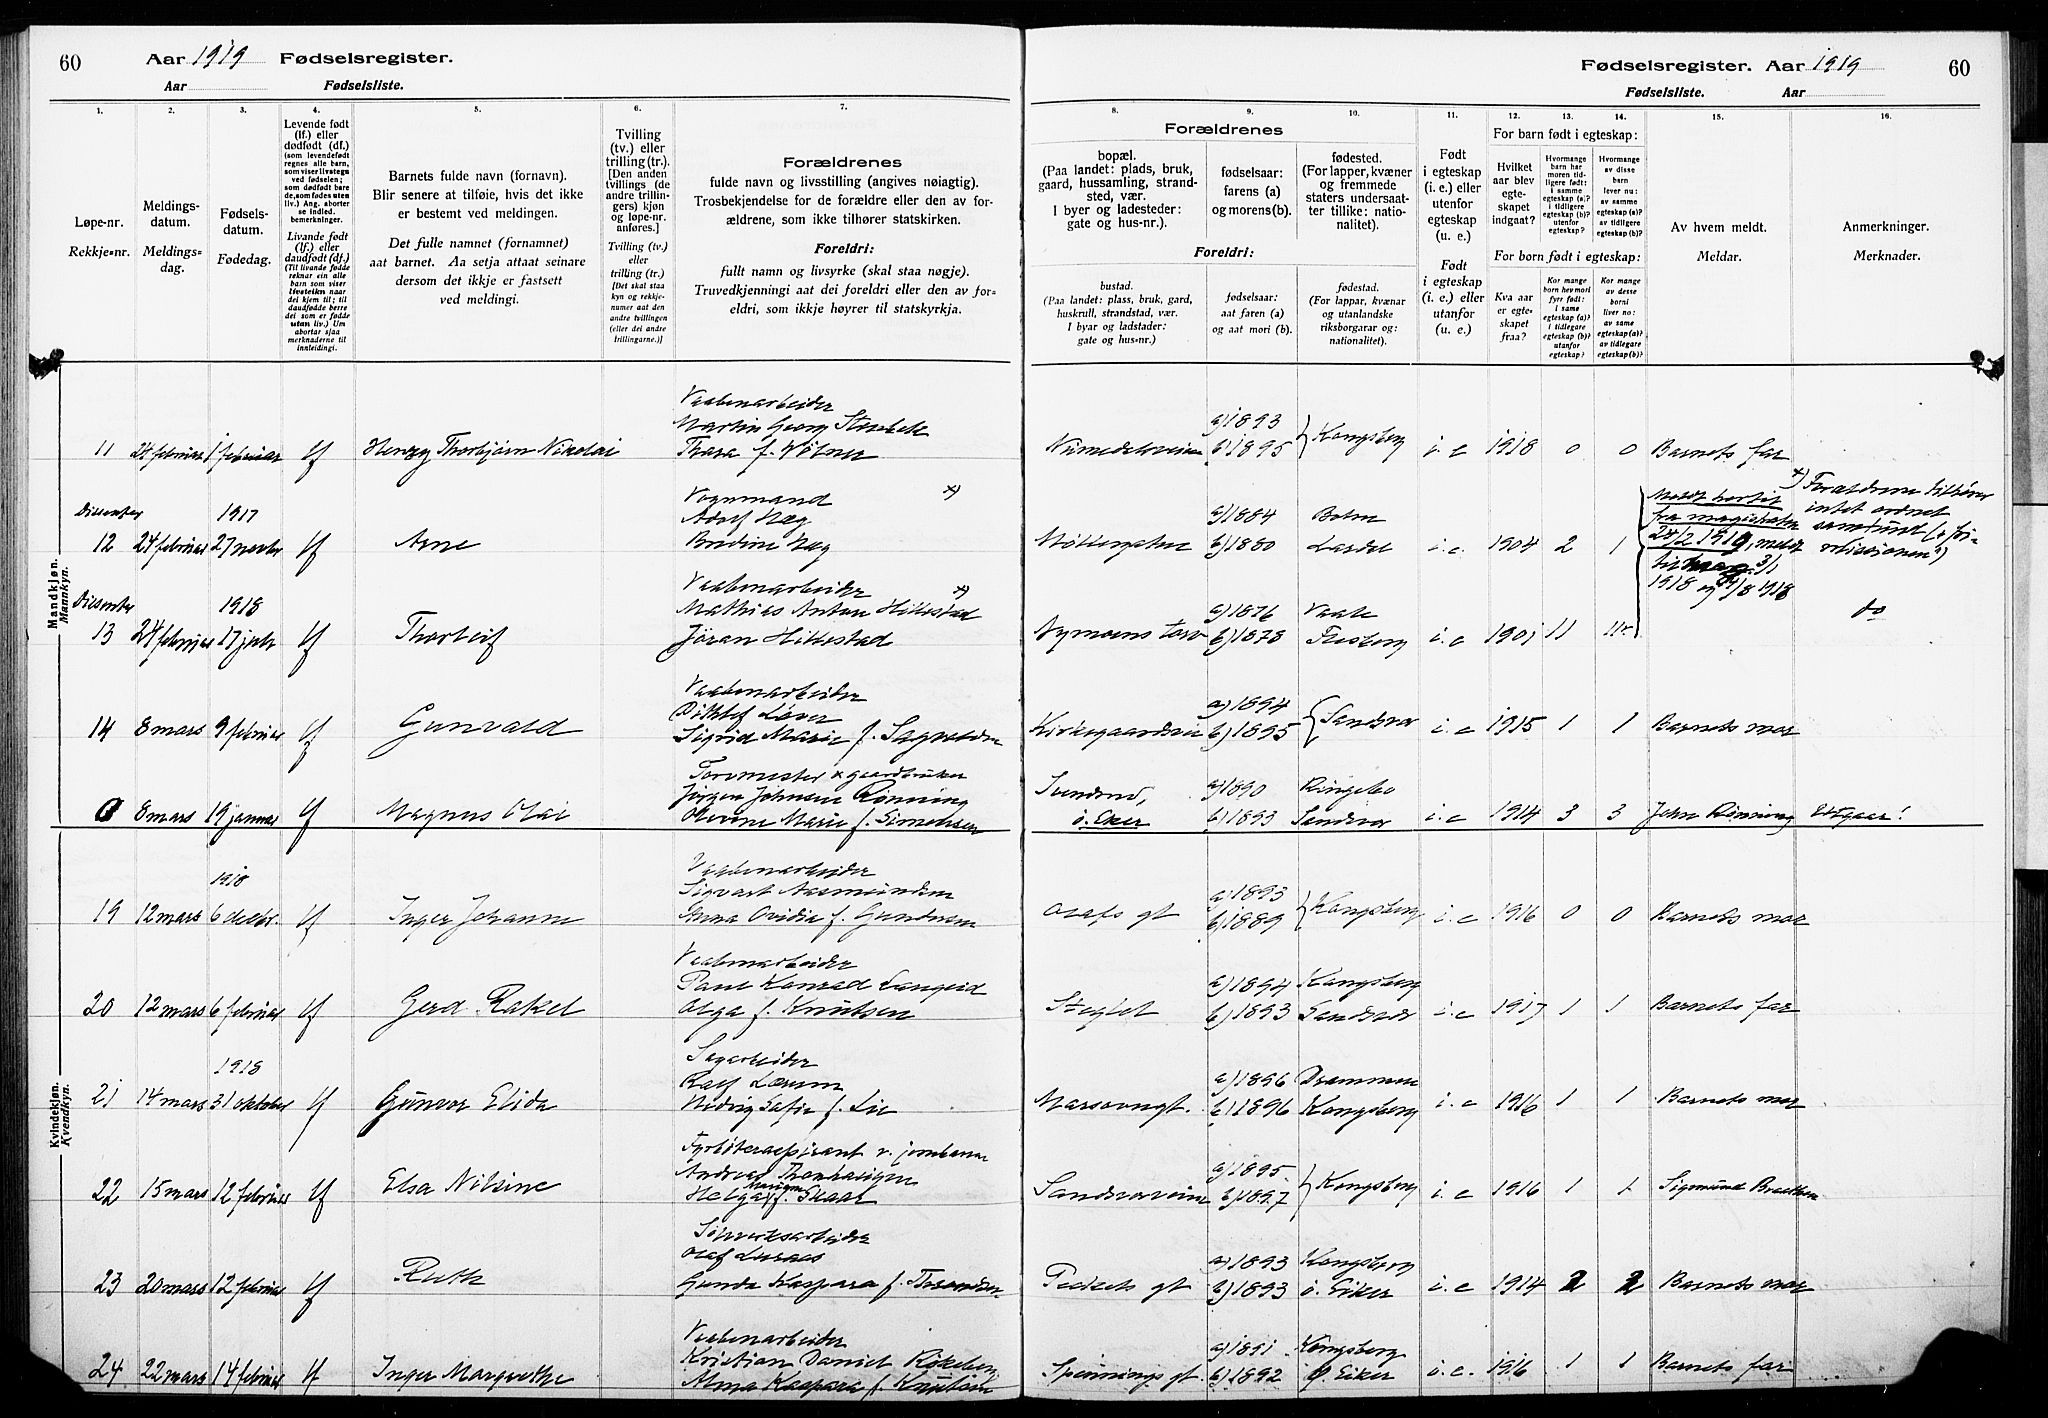 60
Aar 1919 Fødselsregister.
Aar Fødselsliste.
Fødselsregister. Aar 1919
60
Fødselsliste. Aar
1. 2. 3. 4. 5. 6. 7.
8. 9. 10. 11. 12. 13. 14. 15. 16.
Løpe-nr.
Rekkje-nr.
Meldings-
datum.
Meldings-
dag.
Fødsels-
datum.
Fødedag.
Levende født
(lf.) eller
dødfødt (df.)
(som levendefødt
regnes alle barn,
som viser livstegn
ved fødselen;
som dødfødt bare
de, som fødes uten
liv.) Ang. aborter
se indled.
bemerkninger.
Livande født
(lf.) eller
daudfødt (df.)
(Til livande fødde
reknar ein alle
barn som viser
livsteikn naar
dei kjem til; til
daudfødde berre
dei som er fødde
utan liv.) Um
abortar sjaa
merknaderne til
innleidingi.
Barnets fulde navn (fornavn).
Blir senere at tilføie, hvis det ikke
er bestemt ved meldingen.
Det fulle namnet (fornamnet)
aat barnet. Aa setja attaat seinare
dersom det ikkje er fastsett
ved meldingi.
Tvilling
(tv.) eller
trilling (tr.).
[Den anden
tvillings (de
andre trillin-
gers) kjøn
og løpe-nr.
anføres.]
Tvilling (tv.)
eller
trilling (tr.)
[Det skal staa
kyn og rekkje-
numer aat den
andre tvillingen
(eller dei andre
trillingarne.)]
Forældrenes
fulde navn og livsstilling (angives nøiagtig).
Trosbekjendelse for de forældre eller den av for-
ældrene, som ikke tilhører statskirken.
Foreldri:
fullt namn og livsyrke (skal staa nøgje).
Truvedkjenningi aat dei foreldri eller den av for-
eldri, som ikkje høyrer til statskyrkja.
Forældrenes
bopæl.
(Paa landet: plads, bruk,
gaard, hussamling, strand-
sted, vær.
I byer og ladesteder:
gate og hus-nr.).
fødselsaar:
farens (a)
og morens (b).
fødested.
(For lapper, kvæner
og fremmede
staters undersaat-
ter tillike: natio-
nalitet).
Foreldri:
bustad.
(Paa landet: plass, bruk, gard,
huskrull, strandstad, vær.
I byar og ladstader:
gate og hus-nr.)
fødselsaar:
aat faren (a)
og aat mori (b).
fødestad.
(For lappar, kvænar
og utanlandske
riksborgarar og:
nationalitet).
Født
i egteskap
(i. e.) eller
utenfor
egteskap
(u. e.)
Født
i egteskap
(i. e.) eller
utanfor
(u. e.)
For barn født i egteskap:
Hvilket
aar blev
egte-
skapet
indgaat?
Hvormange
barn har
moren tid-
ligere født:
i samme
egteskap (a)?
i tidligere
egteskap (b)?
utenfor
egteskap?
Hvormange
av disse
barn
lever nu:
av samme
egteskap (a)?
av tidligere
egteskap (b)?
For born født i egteskap:
Kva aar
er egte-
skapet
fraa?
Kor mange
born hev mori
fyrr født:
i same
egteskap (a)?
i tidlegare
egteskap (b)?
utanfor
egteskap?
Kor mange
av desse
borni
liver no:
av same
egteskap (a)?
av tidlegare
egteskap (b)?
Av hvem meldt.
Meldar.
Anmerkninger.
Merknader.
Mandkjøn.
Mannkyn.
Vaabenarbeider
Martin Georg
11 24 februar 1 februar lf Henry Thorbjørn Nikolai Thora f.
a) 1893
b) 1895 Kongsberg i. e 1918 0 0 Barnets far
Dissenter 1917 Vognmand x)
Adolf Hæg
12 24 februar 27 novbr lf Arne Bredine Hæg
Møllegaten a) 1884
b) 1880 Lardal i. e. 1904 2 1
fra magistraten
24/2 1919, meldt
til mag. 3/1
1918 og 1918
x) Forældrene tilhører
intet ordnet
samfund
Dissenter 1918 Vaabenarbeider x)
Mathias Anton Hillestad
13 24 februar 17 juli lf Thorleif Jøran Hillestad
Nymoens torv a) 1876 Vaale
b) 1878 Flesberg i. e 1901 11 11 do
Vaabenarbeider
14 8 mars 9 februar lf Gunvald Sigrid Marie f.
Kirkegaardsvn a) 1894
b) 1895 Sandsvær i. e 1915 1 1 Barnets mor
Tørvmester & gaardbruker
Jørgen Johnsen Rønning
0 8 mars 19 januar lf Magnus Olai Olevine Marie f. Simensen
ø. Eker a) 1890 Ringebo
b) 1893 Sandsvær i. e 1914 3 3 John Rønning Utgaar!
Kvindekjøn.
Kvendkyn.
1918 Vaabenarbeider
Sigvart Aasmundsen
19 12 mars 6 decbr. lf Inger Johanne Anna Ovidia f. Gundersen
Olafs gt a) 1893
b) 1889 Kongsberg i. e 1916 0 0 Barnets mor
Vaabenarbeider
Paul Konrad Langerud
20 12 mars 6 februar lf Gerd Rakel Olga f. Knutsen
Steglet a) 1894 Kongsberg
b) 1893 Sandsvær i. e 1917 1 1 Barnets far
1918 Sagarbeider
Ralf Lærum
21 14 mars 31 oktober lf Gunvor Elida Hedvig Sofie f. Lie
a) 1896 Drammen
b) 1896 Kongsberg i. e 1916 1 1 Barnets mor
Fyrbøteraspirant v. jernbanen
Andreas
22 15 mars 12 februar lf Elsa Nilsine Helga f. Skaal
Sandsværveien a) 1895
b) 1897 Kongsberg i. e 1916 1 1 Sigmund Braathen
Sølvverksarbeider
Olaf
23 20 mars 12 februar lf Ruth Gunda Kaspara f.
Peckels gt a) 1893 Kongsberg
b) 1893 ø. Eiker i. e 1914 2 2 Barnets mor
Vaabenarbeider
Kristian Daniel Røkeberg
24 22 mars 14 februar lf Inger Margrethe Alma Kaspara f. Knutsen
Spennings gt. a) 1891 Kongsberg
b) 1892 Ø. Eiker i. e. 1916 1 1 Barnets far